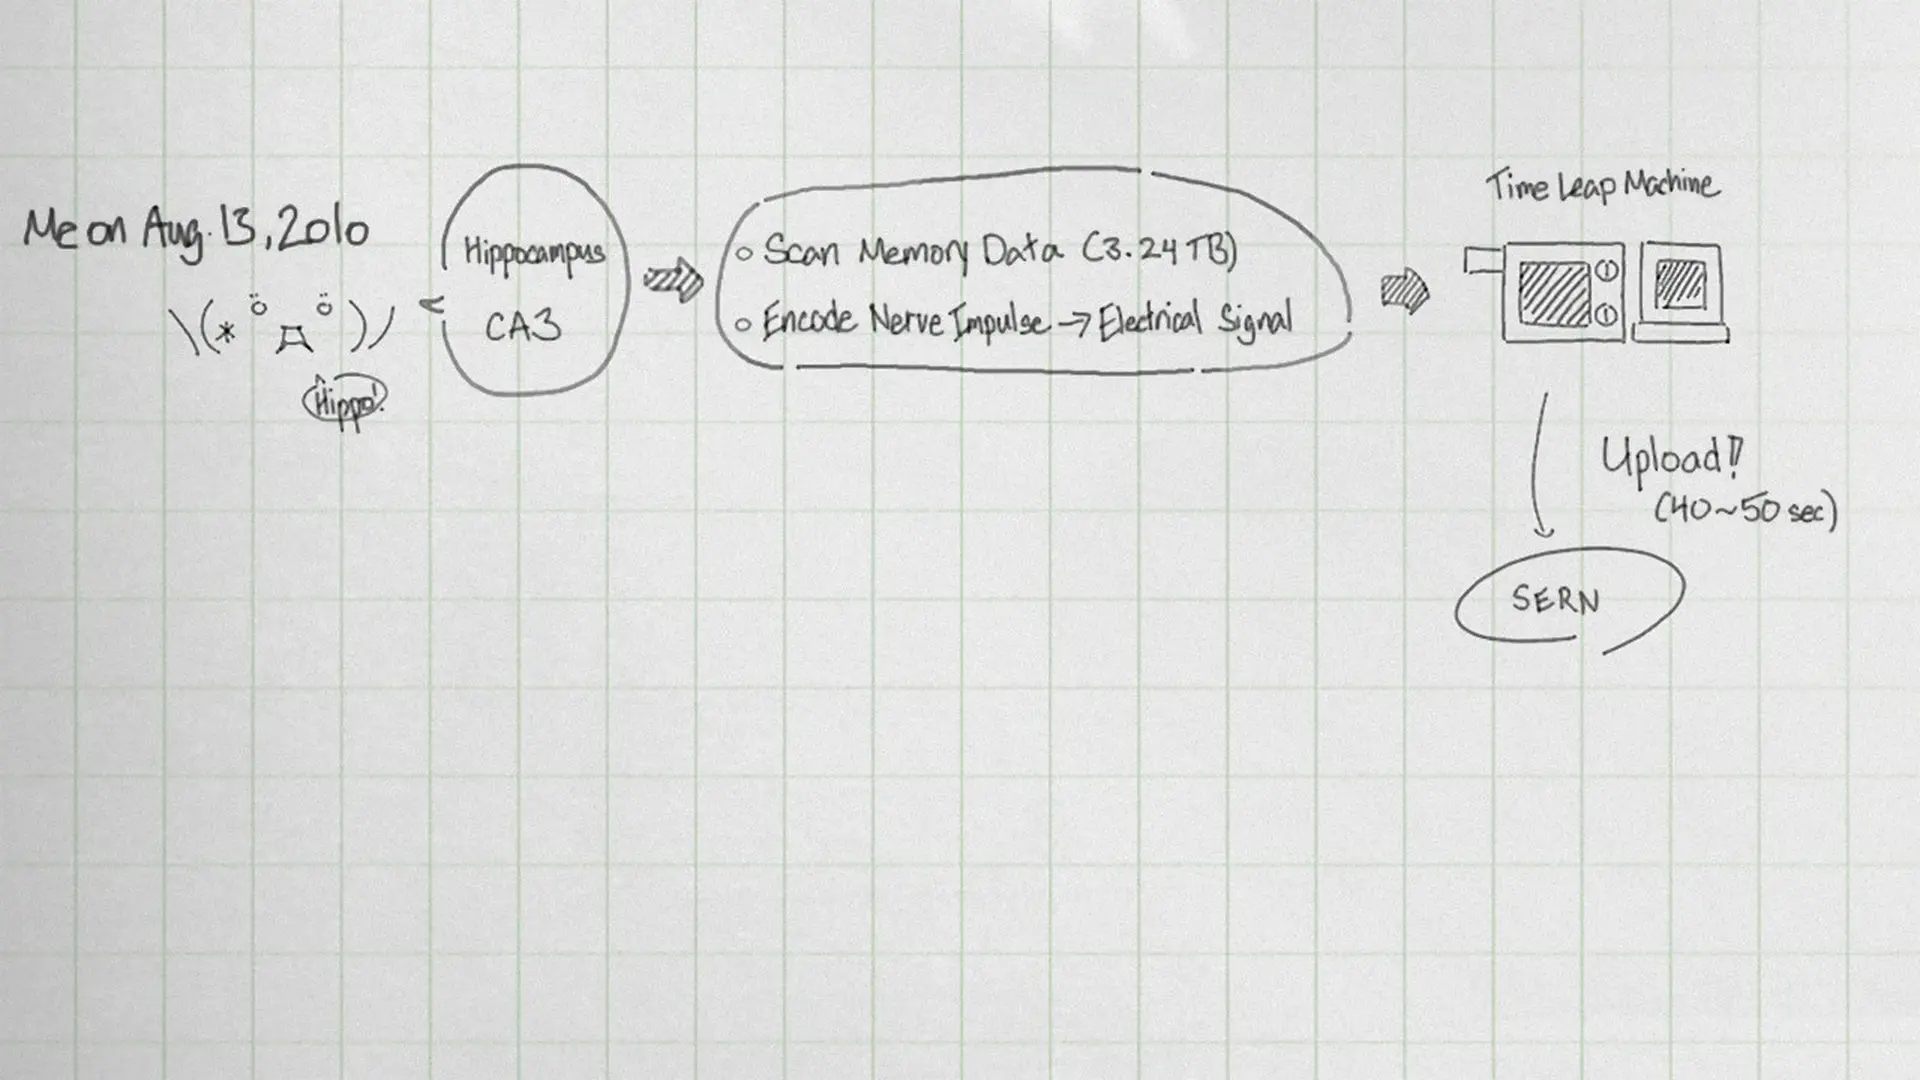 Me on Aug. 13, 2010
\(* ö д ö )/
Hippo!
Hippocampus
CA3
○ Scan Memory Data (3.24 TB)
○ Encode Nerve Impulse → Electrical Signal
Time Leap Machine
Upload!!
(40~50 sec)
SERN